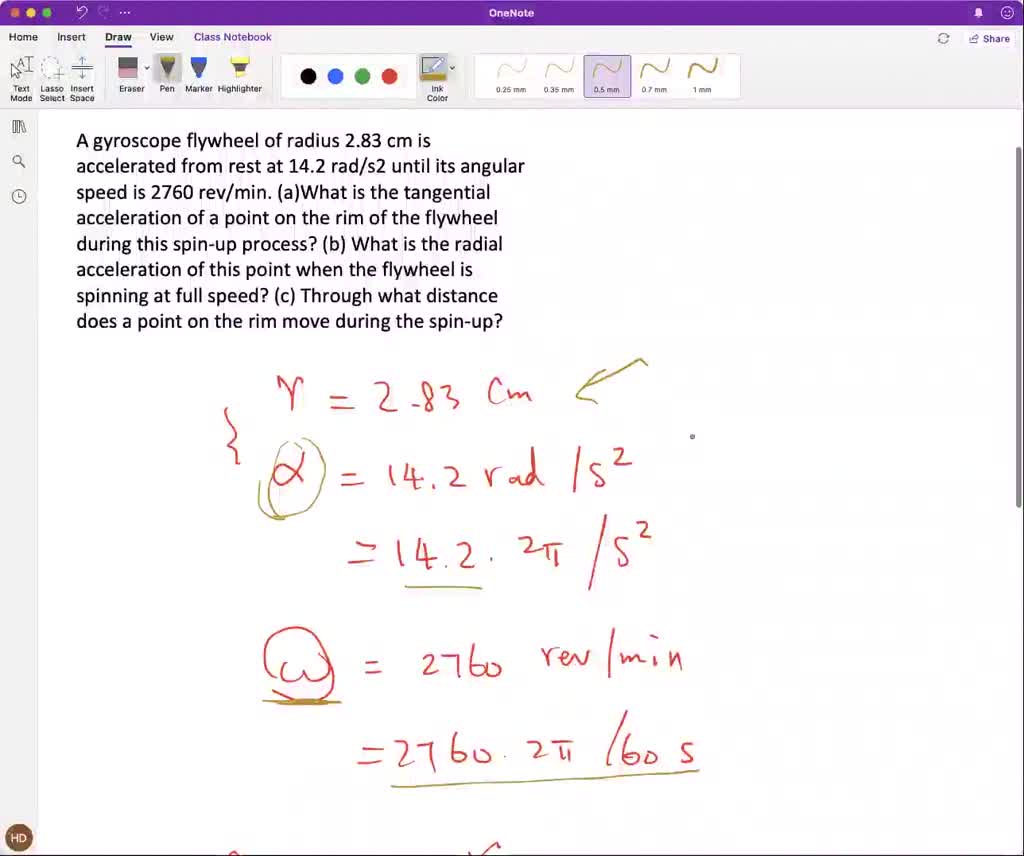 OneNote
Home Insert Draw View Class Notebook
Share
Text Mode Lasso Select Insert Space Eraser Pen Marker Highlighter Ink Color 0.25 mm 0.35 mm 0.5 mm 0.7 mm 1 mm
A gyroscope flywheel of radius 2.83 cm is
accelerated from rest at 14.2 rad/s2 until its angular
speed is 2760 rev/min. (a)What is the tangential
acceleration of a point on the rim of the flywheel
during this spin-up process? (b) What is the radial
acceleration of this point when the flywheel is
spinning at full speed? (c) Through what distance
does a point on the rim move during the spin-up?
r = 2.83 cm
α = 14.2 rad /s²
= 14.2 . 2π /s²
ω = 2760 rev/min
= 2760 . 2π /60 s
HD